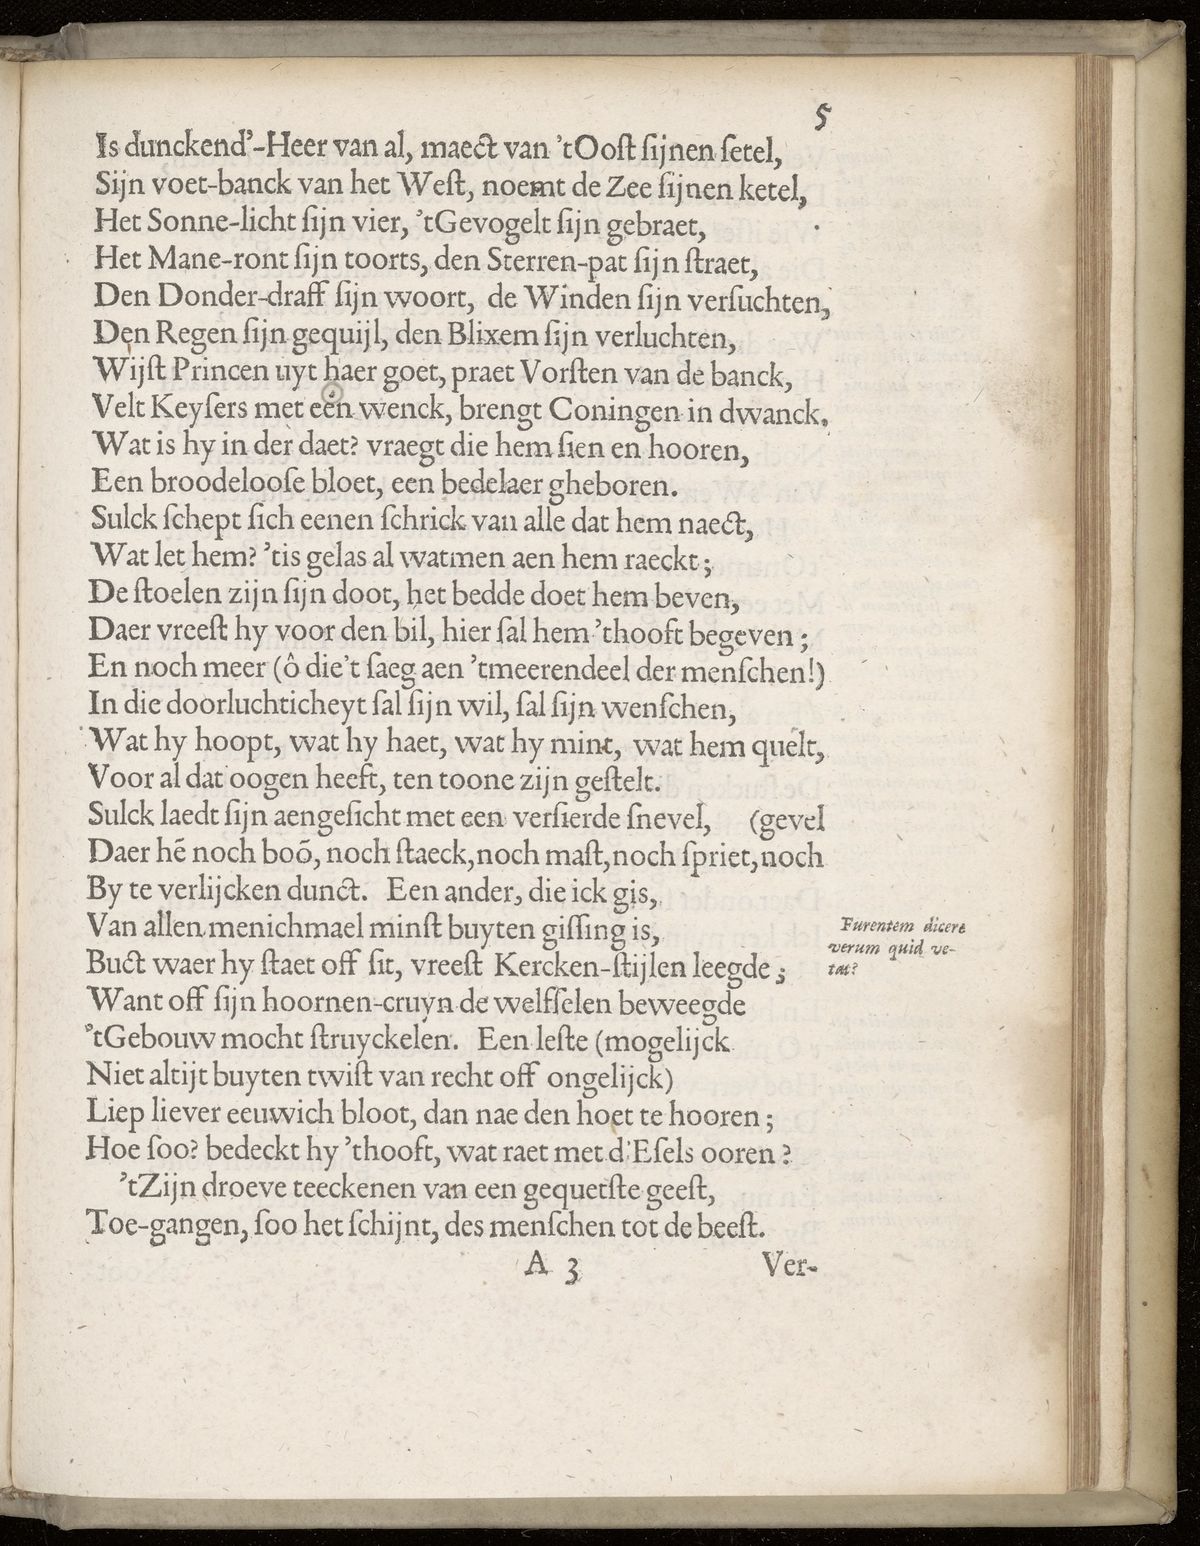 5
Is dunckend’-Heer van al, maect van ’tOoſt ſijnen ſetel,
Sijn voet-banck van het Weſt, noemt de Zee ſijnen ketel,
Het Sonne-licht ſijn vier, ’tGevogelt ſijn gebraet,
Het Mane-ront ſijn toorts, den Sterren-pat ſijn ſtraet,
Den Donder-draff ſijn woort, de Winden ſijn verſuchten,
Den Regen ſijn gequijl, den Blixem ſijn verluchten,
Wijſt Princen uyt haer goet, praet Vorſten van de banck,
Velt Keyſers met een wenck, brengt Coningen in dwanck.
Wat is hy in der daet? vraegt die hem ſien en hooren,
Een broodelooſe bloet, een bedelaer gheboren.
Sulck ſchept ſich eenen ſchrick van alle dat hem naect,
Wat let hem? ’tis gelas al watmen aen hem raeckt;
De ſtoelen zijn ſijn doot, het bedde doet hem beven,
Daer vreeſt hy voor den bil, hier ſal hem ’thooft begeven;
En noch meer (ô die’t ſaeg aen ’tmeerendeel der menſchen!)
In die doorluchticheyt ſal ſijn wil, ſal ſijn wenſchen,
Wat hy hoopt, wat hy haet, wat hy mint, wat hem quelt,
Voor al dat oogen heeft, ten toone zijn geſtelt.
Sulck laedt ſijn aengeſicht met een verſierde ſnevel, (gevel
Daer hē noch boō, noch ſtaeck, noch maſt, noch ſpriet, noch
By te verlijcken dunct. Een ander, die ick gis,
Van allen menichmael minſt buyten giſſing is,
Buct waer hy ſtaet off ſit, vreeſt Kercken-ſtijlen leegde;
Want off ſijn hoornen-cruyn de welfſelen beweegde
’tGebouw mocht ſtruyckelen. Een leſte (mogelijck
Niet altijt buyten twiſt van recht off ongelijck)
Liep liever eeuwich bloot, dan nae den hoet te hooren;
Hoe ſoo? bedeckt hy ’thooft, wat raet met d’Eſels ooren?
’tZijn droeve teeckenen van een gequetſte geeſt,
Toe-gangen, ſoo het ſchijnt, des menſchen tot de beeſt.
A 3 Ver-
Furentem dicere
verum quid ve-
tat?